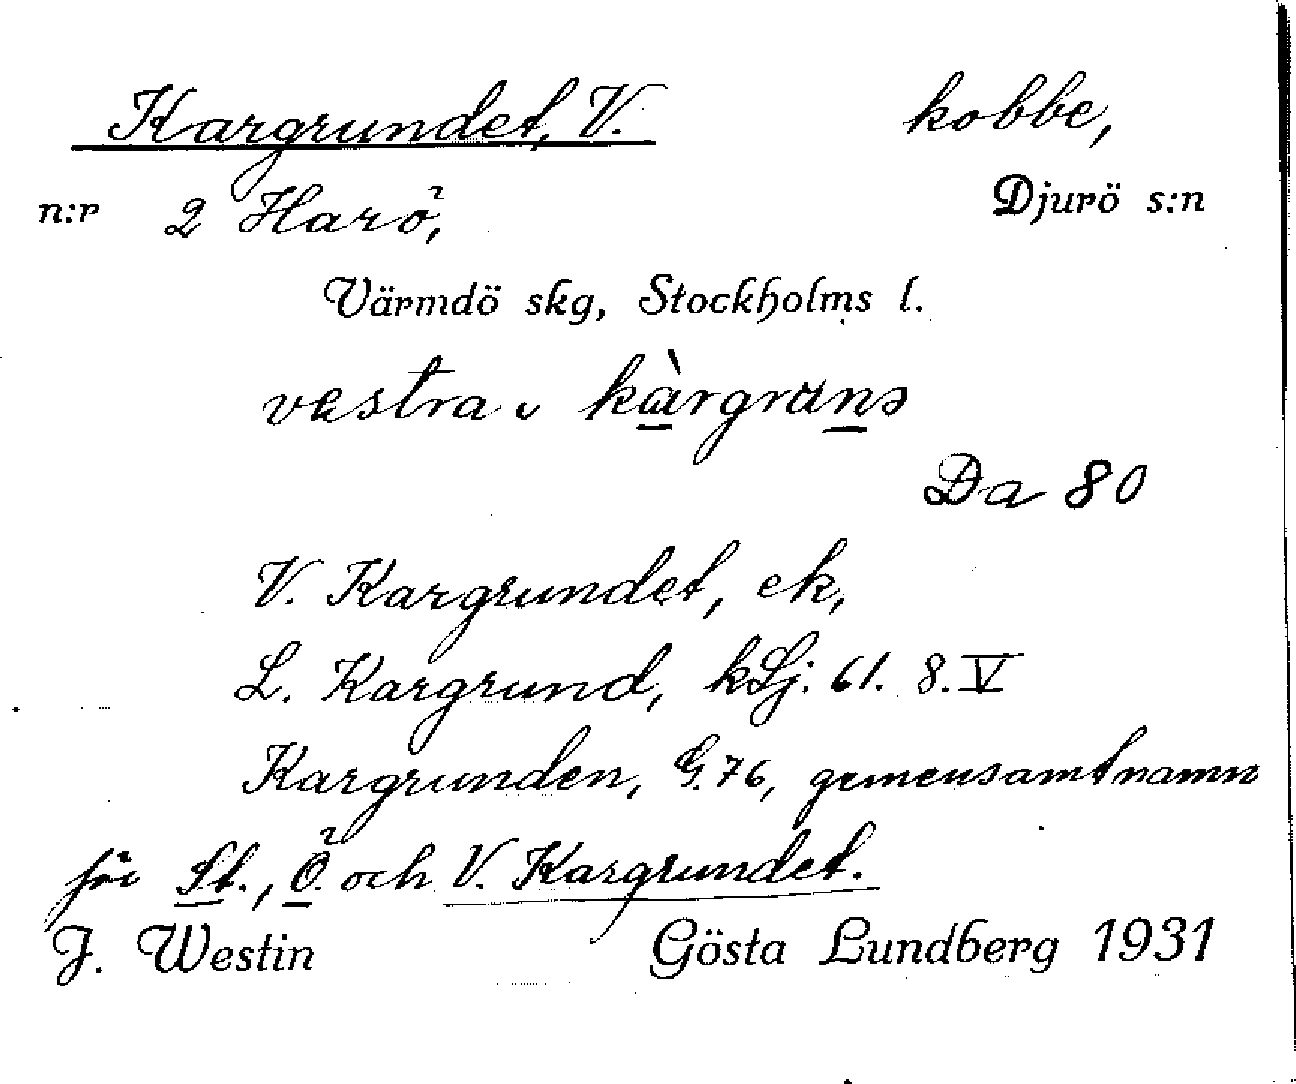 Kargrundet, V. kobbe,
n:r 2 Harö, Djurö s:n
Värmdö skg, Stockholms l.
vastra kàrgrünə
Da 80
V. Kargrundet, ek,
L. Kargrund, kLj. 61. 8. V
Kargrunden, G. 76, gemensamt namn
för St., Ö. och V. Kargrundet.
J. Westin Gösta Lundberg 1931